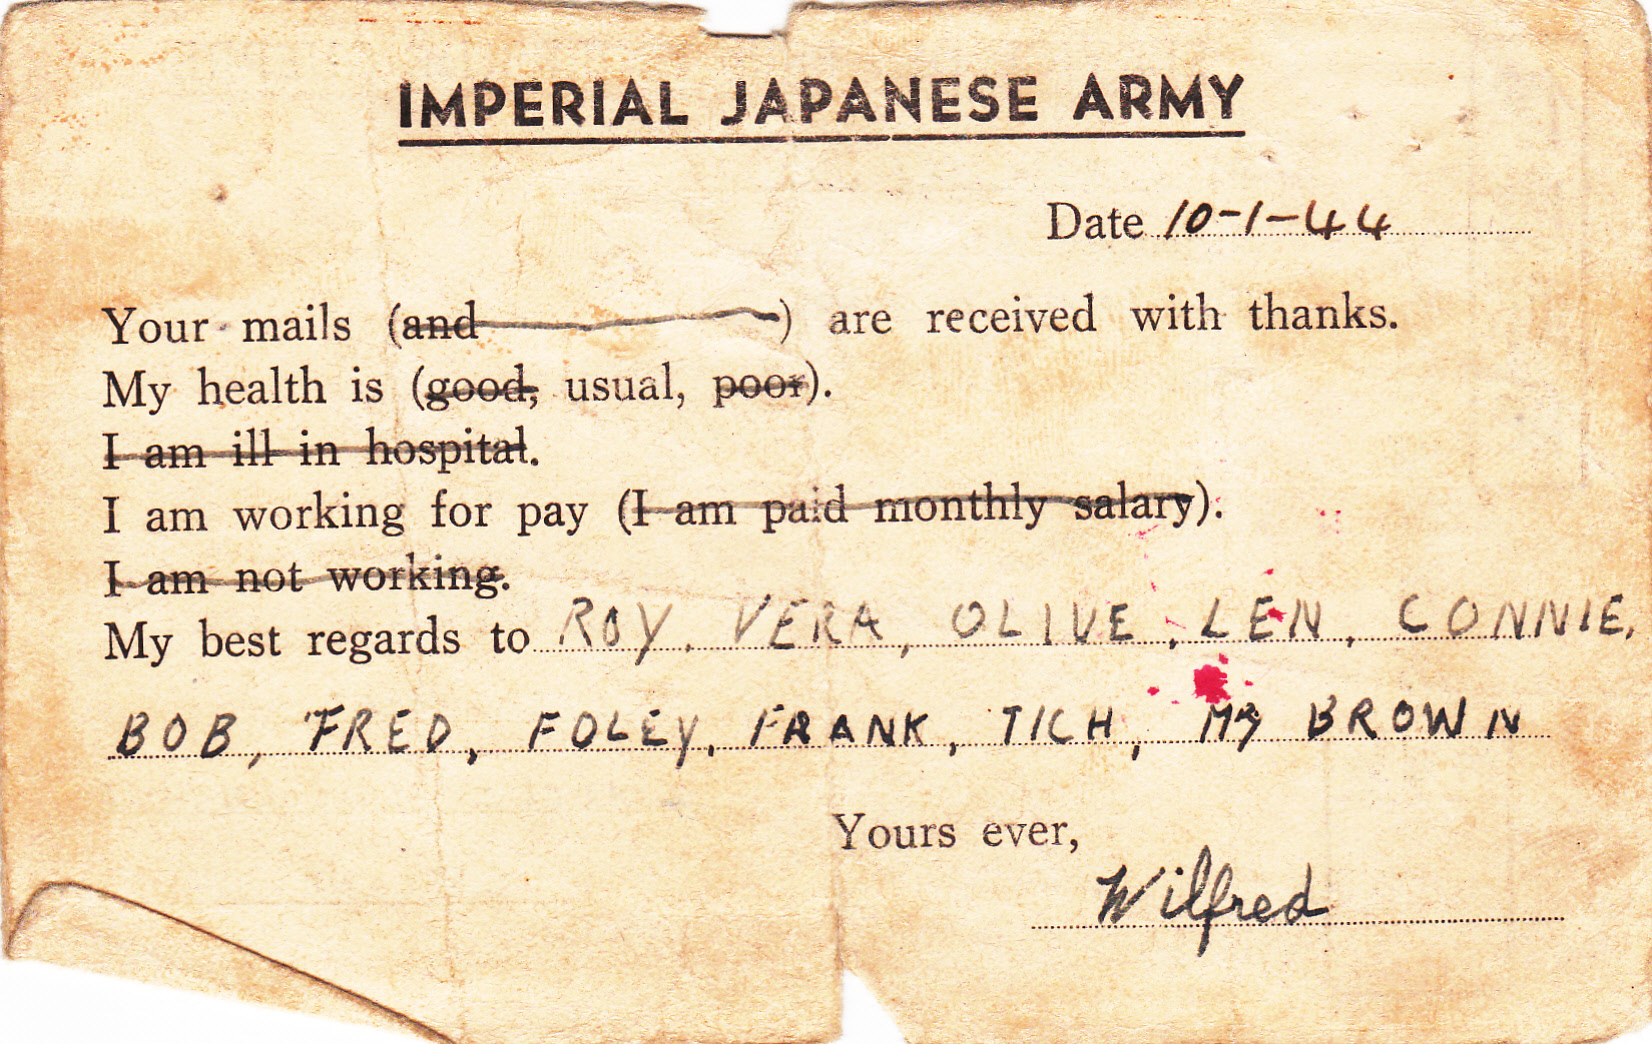 IMPERIAL JAPANESE ARMY
Date 10-1-44
Your mails (and ) are received with thanks.
My health is (good, usual, poor).
I am ill in hospital.
I am working for pay (I am paid monthly salary).
I am not working.
My best regards to ROY, VERA, OLIVE, LEN, CONNIE,
BOB, FRED, FOLEY, FRANK, TICH, BROWN
Yours ever,
Wilfred